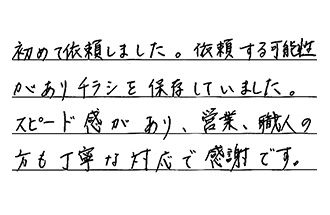 初めて依頼しました。依頼する可能性
がありチラシを保存していました。
スピード感があり、営業、職人の
方も丁寧な対応で感謝です。